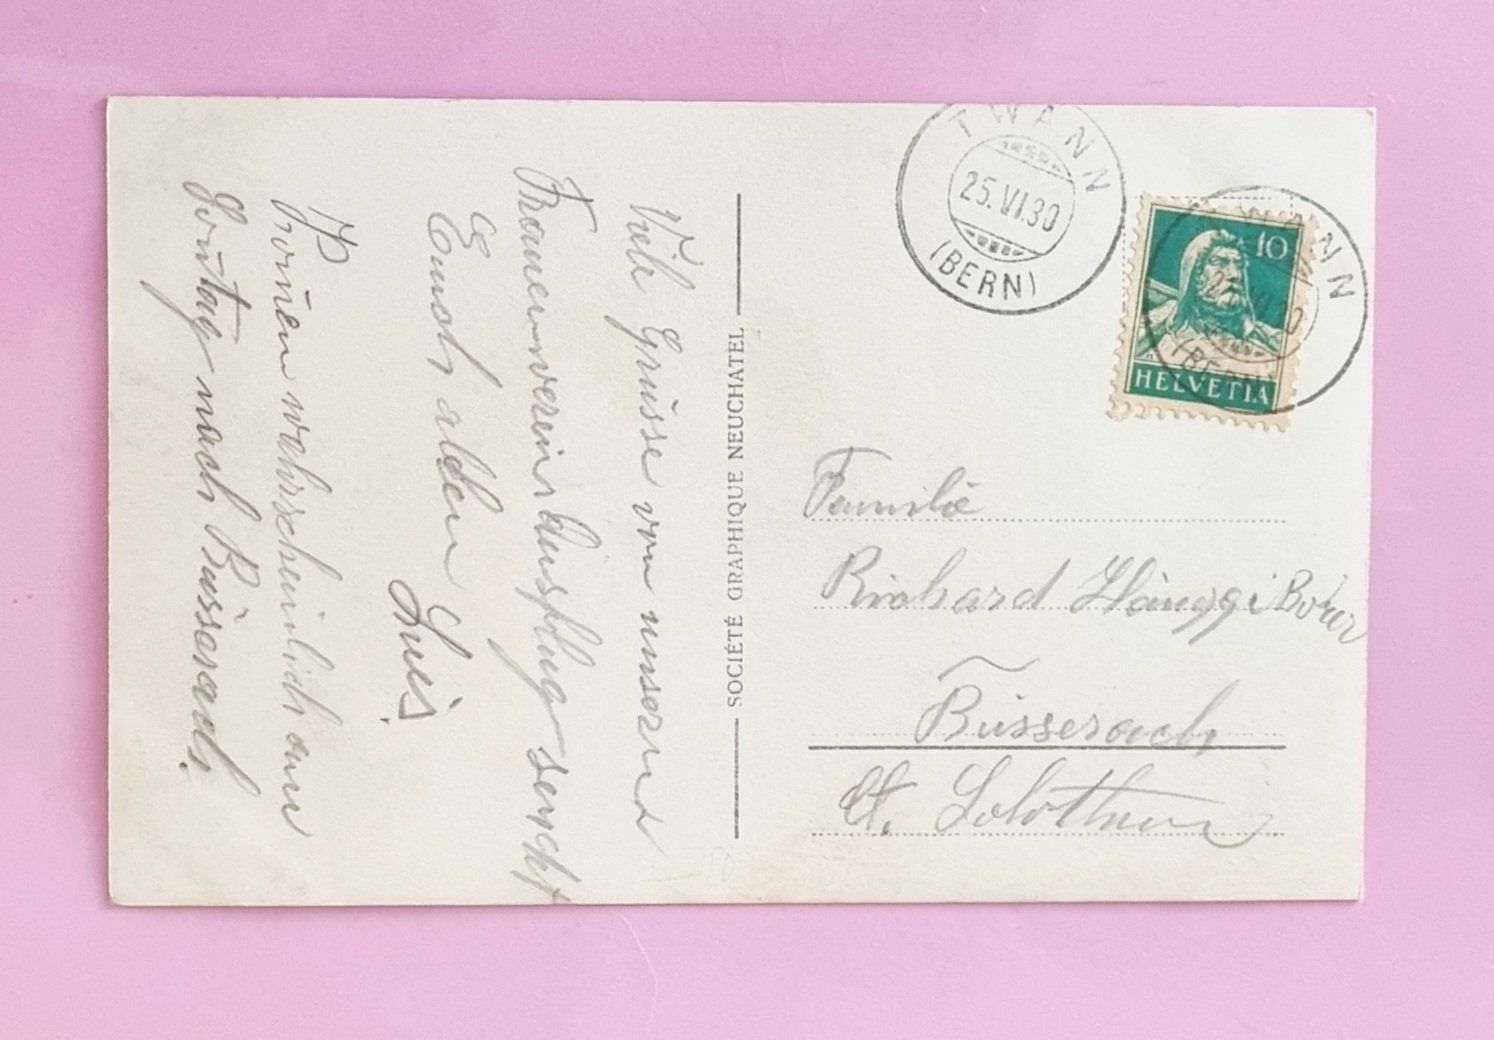 Viele Grüsse von unserm
Frauenvereinsausflug sendet
Euch allen
Luis.
Komen wahrscheinlich am
Sontag nach Büsserach.
SOCIÉTÉ GRAPHIQUE NEUCHATEL
TWANN
25.VI.30
(BERN)
10
HELVETIA
TWANN
(BERN)
Familie
Richard Hänggi Borer
Büsserach
Ct. Solothurn